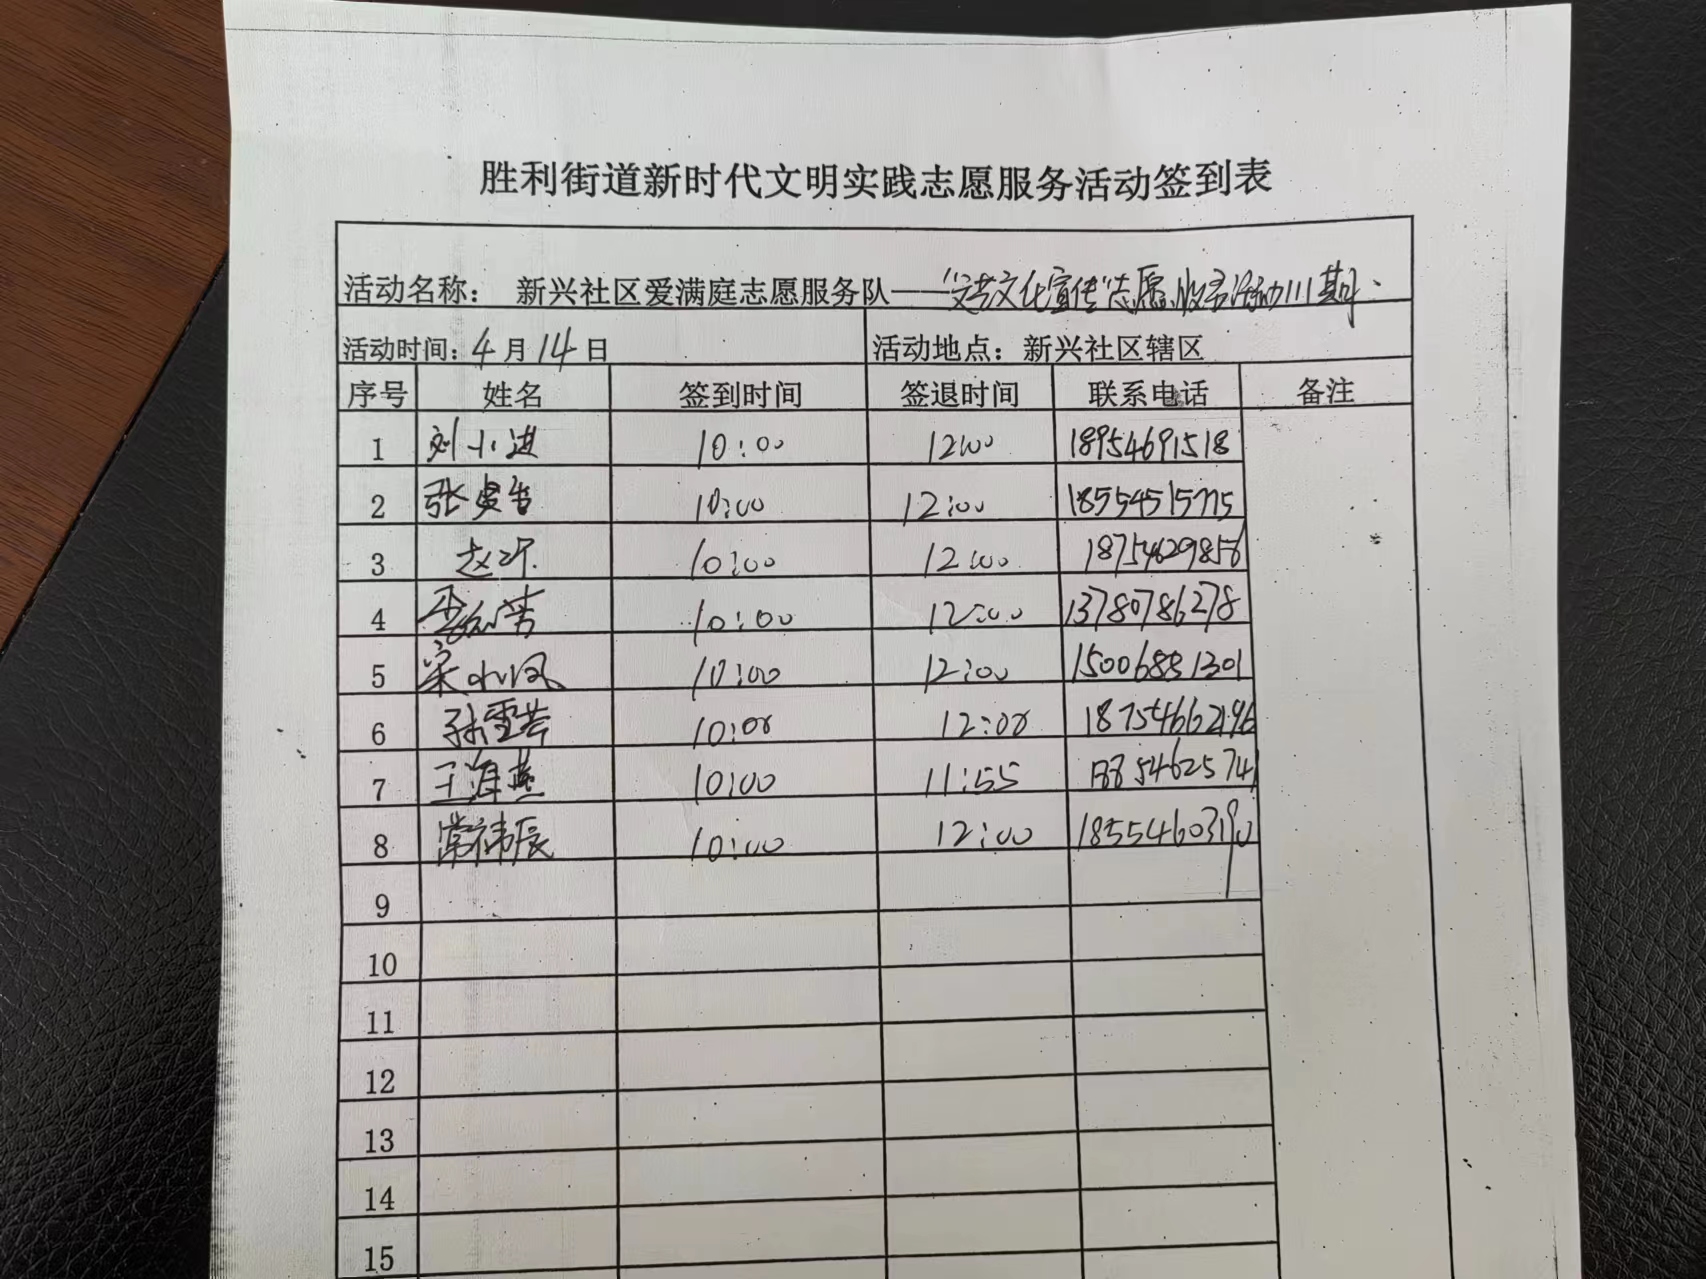 胜利街道新时代文明实践志愿服务活动签到表
活动名称： 新兴社区爱满庭志愿服务队——"安老文化宣传"志愿服务活动111期.
活动时间：4月14日 活动地点：新兴社区辖区
序号 姓名 签到时间 签退时间 联系电话 备注
1 刘小进 10:00 12:00 18954691518
2 张 10:00 12:00 18554515775
3 赵 10:00 12:00 18754629856
4 10:00 12:00 13780786278
5 宋小凤 10:00 12:00 15006881301
6 孙雪芸 10:00 12:00 18754662196
7 王海燕 10:00 11:55
8 常祎辰 10:00 12:00 18554603190
9
10
11
12
13
14
15